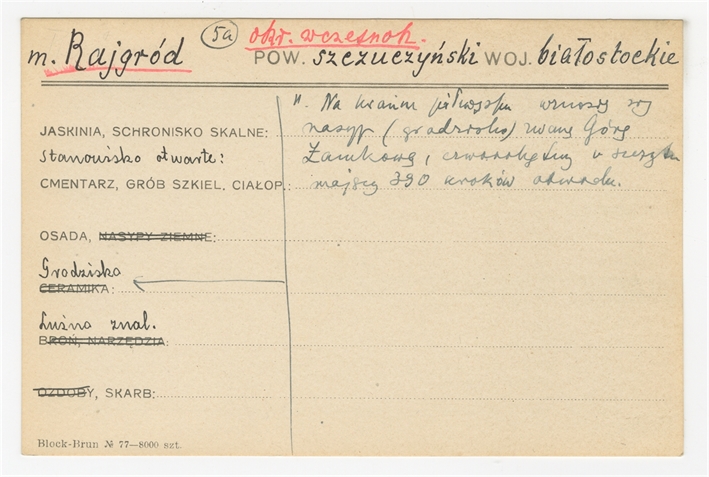 5a okr. wczesnoh.
m. Rajgród POW. szczuczyński WOJ. białostockie
". Na krańcu półwyspu wznosi się
JASKINIA, SCHRONISKO SKALNE: nasyp (grodzisko) zwany Górą
Stanowisko otwarte: Zamkową, czworokątny u szczytu
CMENTARZ, GRÓB SZKIEL, CIAŁOP.: mający 390 kroków obwodu.
OSADA, NASYPY ZIEMNE:
Grodzisko
CERAMIKA:
Luźne znal.
BROŃ, NARZĘDZIA:
OZDOBY, SKARB:
Block-Brun № 77—8000 szt.